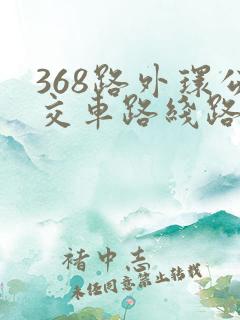 368路外环公
交车路线路
褚中志
未经同意禁止转载